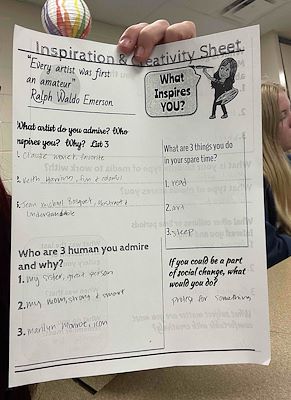 Inspiration & Creativity Sheet
"Every artist was first
an amateur"
Ralph Waldo Emerson
What
Inspires
YOU?
What artist do you admire? Who
nspires you? Why? List 3
1. Claude monet, favorite
2. Keith Harring, fun & colorful
3. Jean michael basquet, abstract &
understandable
What are 3 things you do
in your spare time?
1. read
2. art
3. sleep
Who are 3 human you admire
and why?
1. my sister, great person
2. my mom, strong & smart
3. marilyn Monroe, icon
If you could be a part
of social change, what
would you do?
protest for something